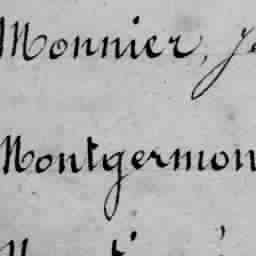 Monnier, J
Montgermon